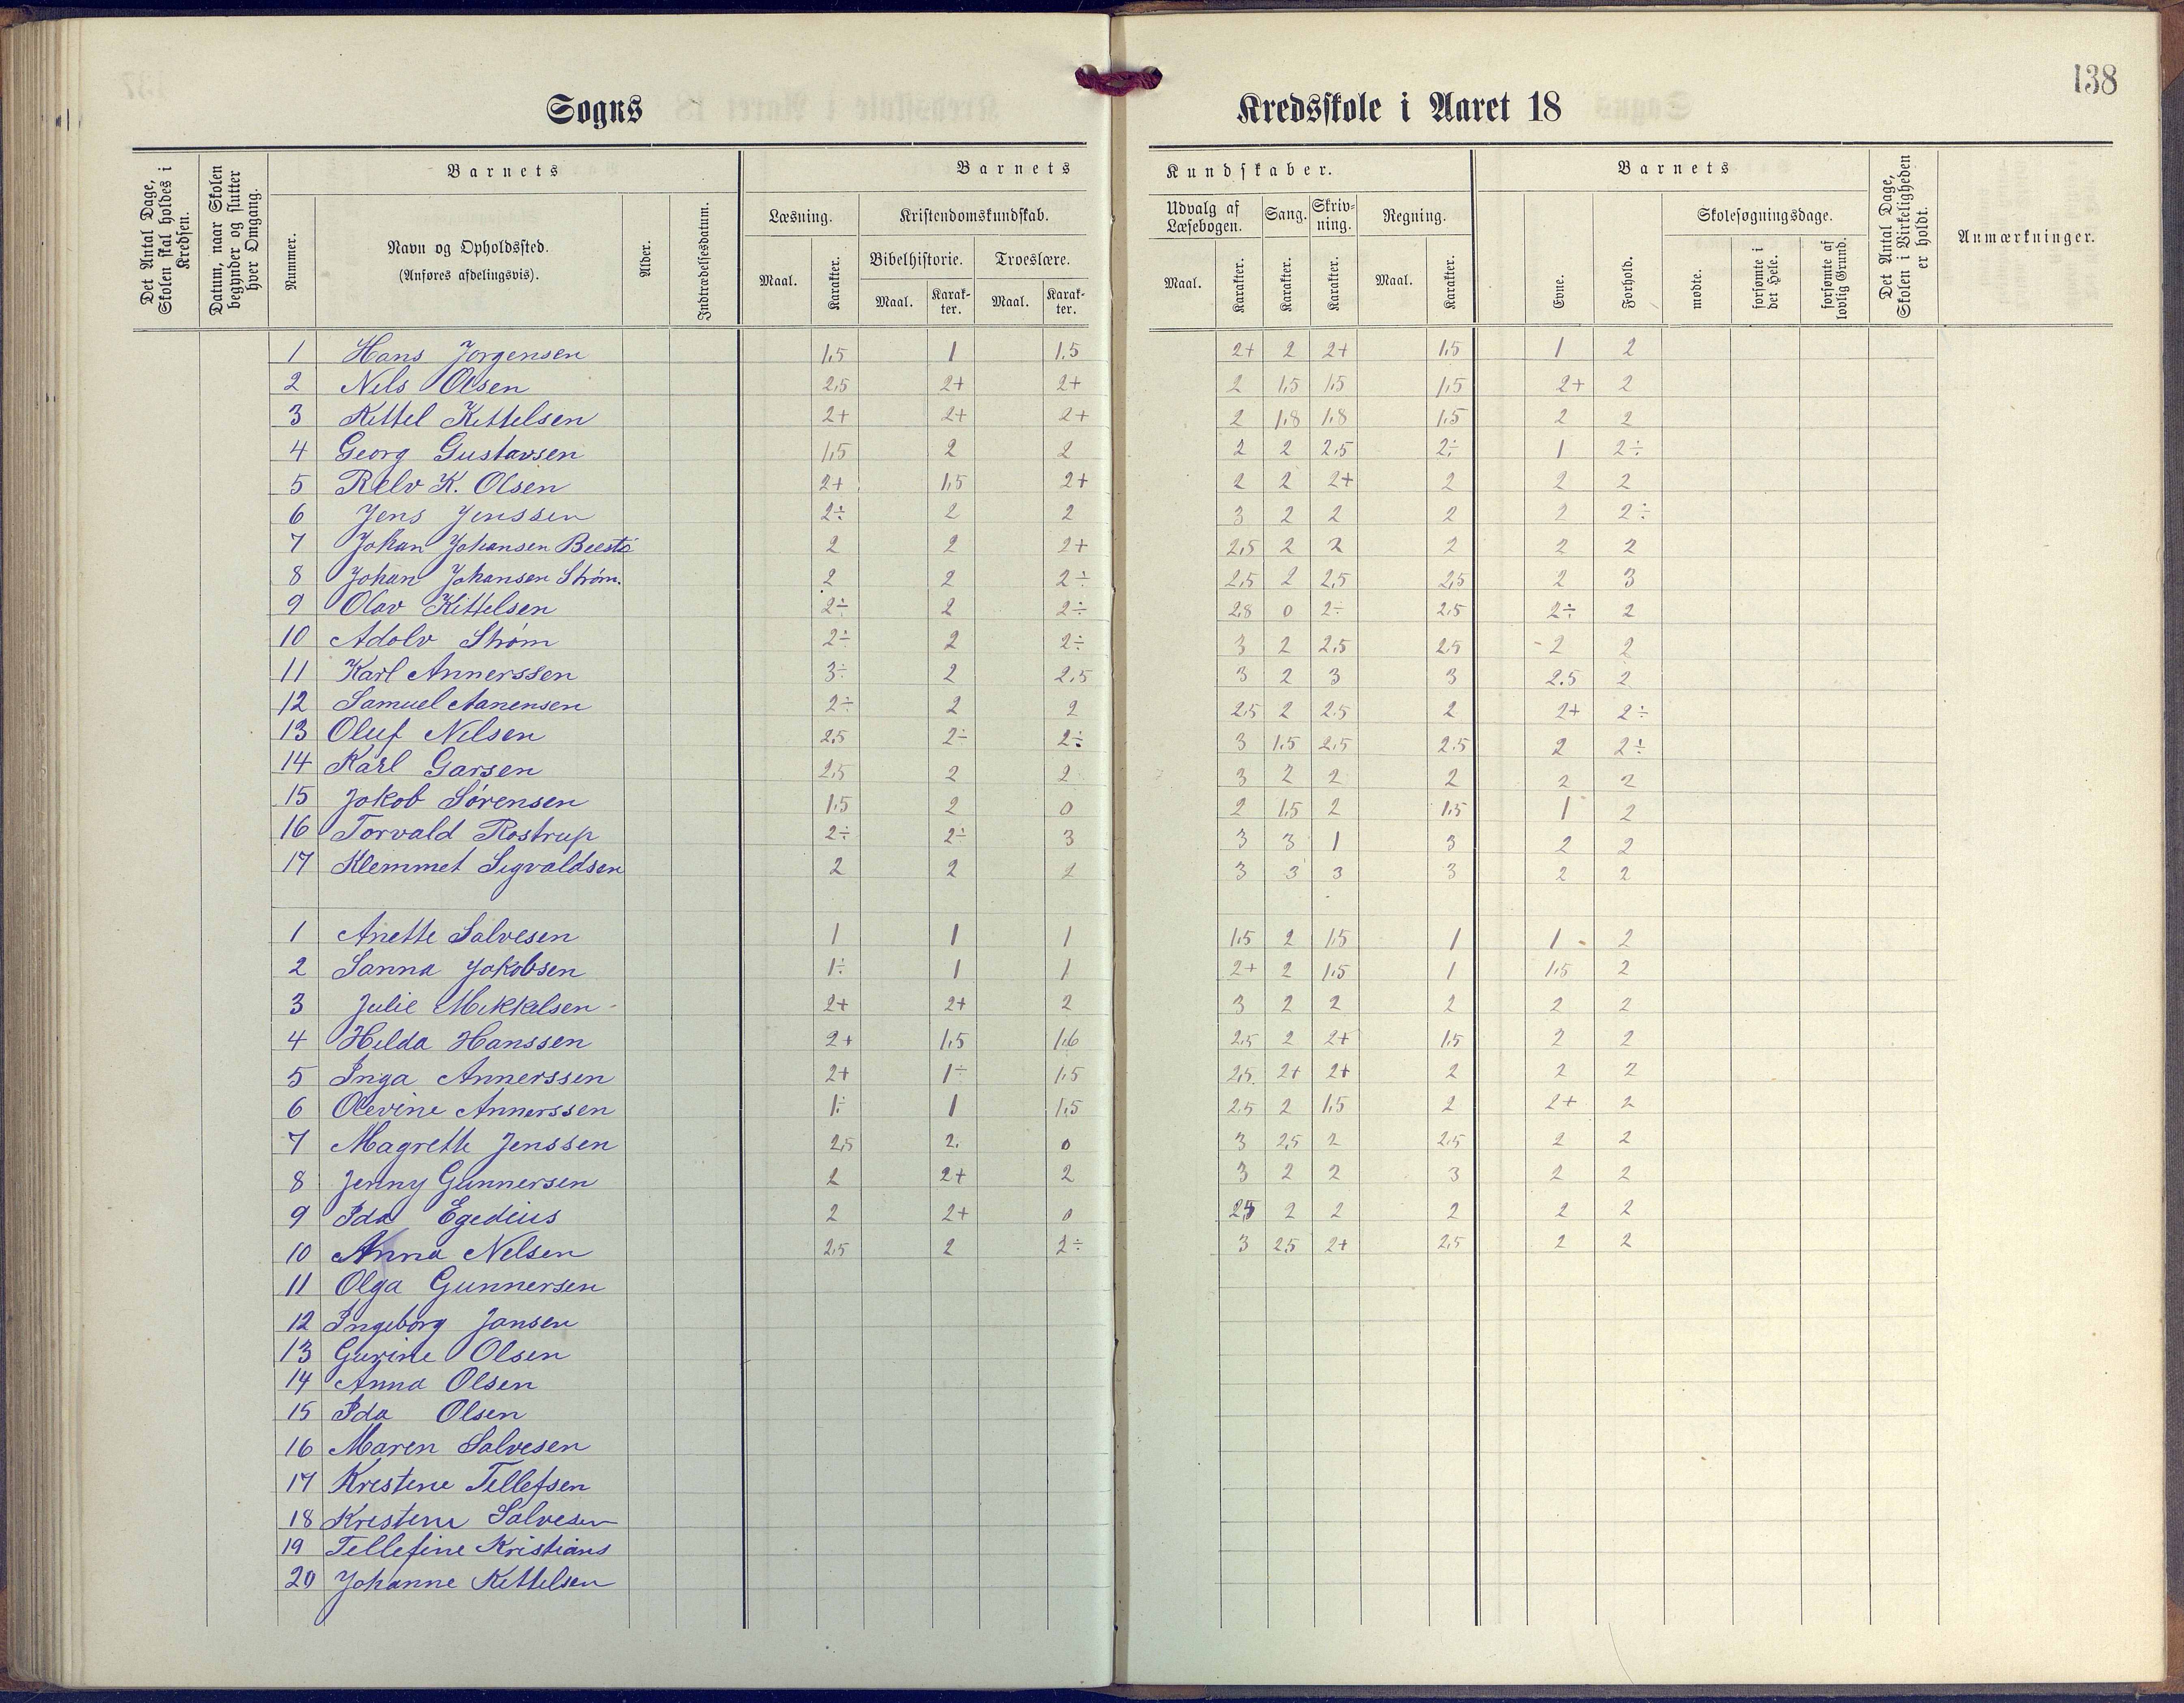 138
Sogns Kredsskole i Aaret 18
Det Antal Dage, Skolen skal holdes i Kredsen.
Datum, naar Skolen begynder og slutter hver Omgang.
Barnets
Nummer.
Navn og Opholdssted.
(Anføres afdelingsvis).
Alder.
Indtrædelsesdatum.
Barnets Kundskaber.
Læsning.
Maal. Karakter.
Kristendomskundskab.
Bibelhistorie. Troeslære.
Maal. Karakter. Maal. Karakter.
Udvalg af Læsebogen.
Maal. Karakter.
Sang.
Karakter.
Skrivning.
Karakter.
Regning.
Maal. Karakter.
Barnets
Evne.
Forhold.
Skolesøgningsdage.
mødte.
forsømte i det Hele.
forsømte af lovlig Grund.
Det Antal Dage, Skolen i Virkeligheden er holdt.
Anmærkninger.
1 Hans Jorgensen 1,5 1 1,5 2+ 2 2+ 1,5 1 2
2 Nels Olsen 2,5 2+ 2+ 2 1,5 1,5 1,5 2+ 2
3 Kittel Kittelsen 2+ 2+ 2+ 2 1,8 1,8 1,5 2 2
4 Georg Gustavsen 1,5 2 2 2 2 2,5 2÷ 1 2÷
5 Relv K. Olsen 2+ 1,5 2+ 2 2 2+ 2 2 2
6 Jens Jenssen 2÷ 2 2 3 2 2 2 2 2÷
7 Johan Johansen 2 2 2+ 2,5 2 2 2 2 2
8 Johan Johansen Strøm. 2 2 2÷ 2,5 2 2,5 2,5 2 3
9 Olav Kittelsen 2÷ 2 2÷ 2,8 0 2÷ 2,5 2÷ 2
10 Adolv Strøm 2÷ 2 2÷ 3 2 2,5 2,5 2 2
11 Karl Annerssen 3÷ 2 2,5 3 2 3 3 2,5 2
12 Samuel Aanensen 2÷ 2 2 2,5 2 2,5 2 2+ 2÷
13 Oluf Nelsen 2,5 2÷ 2÷ 3 1,5 2,5 2,5 2 2÷
14 Karl Garsen 2,5 2 2 3 2 2 2 2 2
15 Jakob Sørensen 1,5 2 0 2 1,5 2 1,5 1 2
16 Torvald Rostrup 2÷ 2÷ 3 3 3 1 3 2 2
17 Klemmet Sigvaldsen 2 2 2 3 3 3 3 2 2
1 Anette Salvesen 1 1 1 1,5 2 1,5 1 1 2
2 Sanna Jakobsen 1÷ 1 1 2+ 2 1,5 1 1,5 2
3 Julie Mikkelsen 2+ 2+ 2 3 2 2 2 2 2
4 Hilda Hanssen 2+ 1,5 1,6 2,5 2 2+ 1,5 2 2
5 Inga Annerssen 2+ 1÷ 1,5 2,5 2+ 2+ 2 2 2
6 Olevine Annerssen 1÷ 1 1,5 2,5 2 1,5 2 2+ 2
7 Magrethe Jenssen 2,5 2. 0 3 2,5 2 2,5 2 2
8 Jenny Gunnersen 2 2+ 2 3 2 2 3 2 2
9 Ida Egedius 2 2+ 0 2,5 2 2 2 2 2
10 Anna Nelsen 2,5 2 2÷ 3 2,5 2+ 2,5 2 2
11 Olga Gunnersen
12 Ingeborg Jansen
13 Gurine Olsen
14 Anna Olsen
15 Ida Olsen
16 Maren Salvesen
17 Kristine Tellefsen
18 Kristine Salvesen
19 Tellefine Kristians
20 Johanne Kittelsen